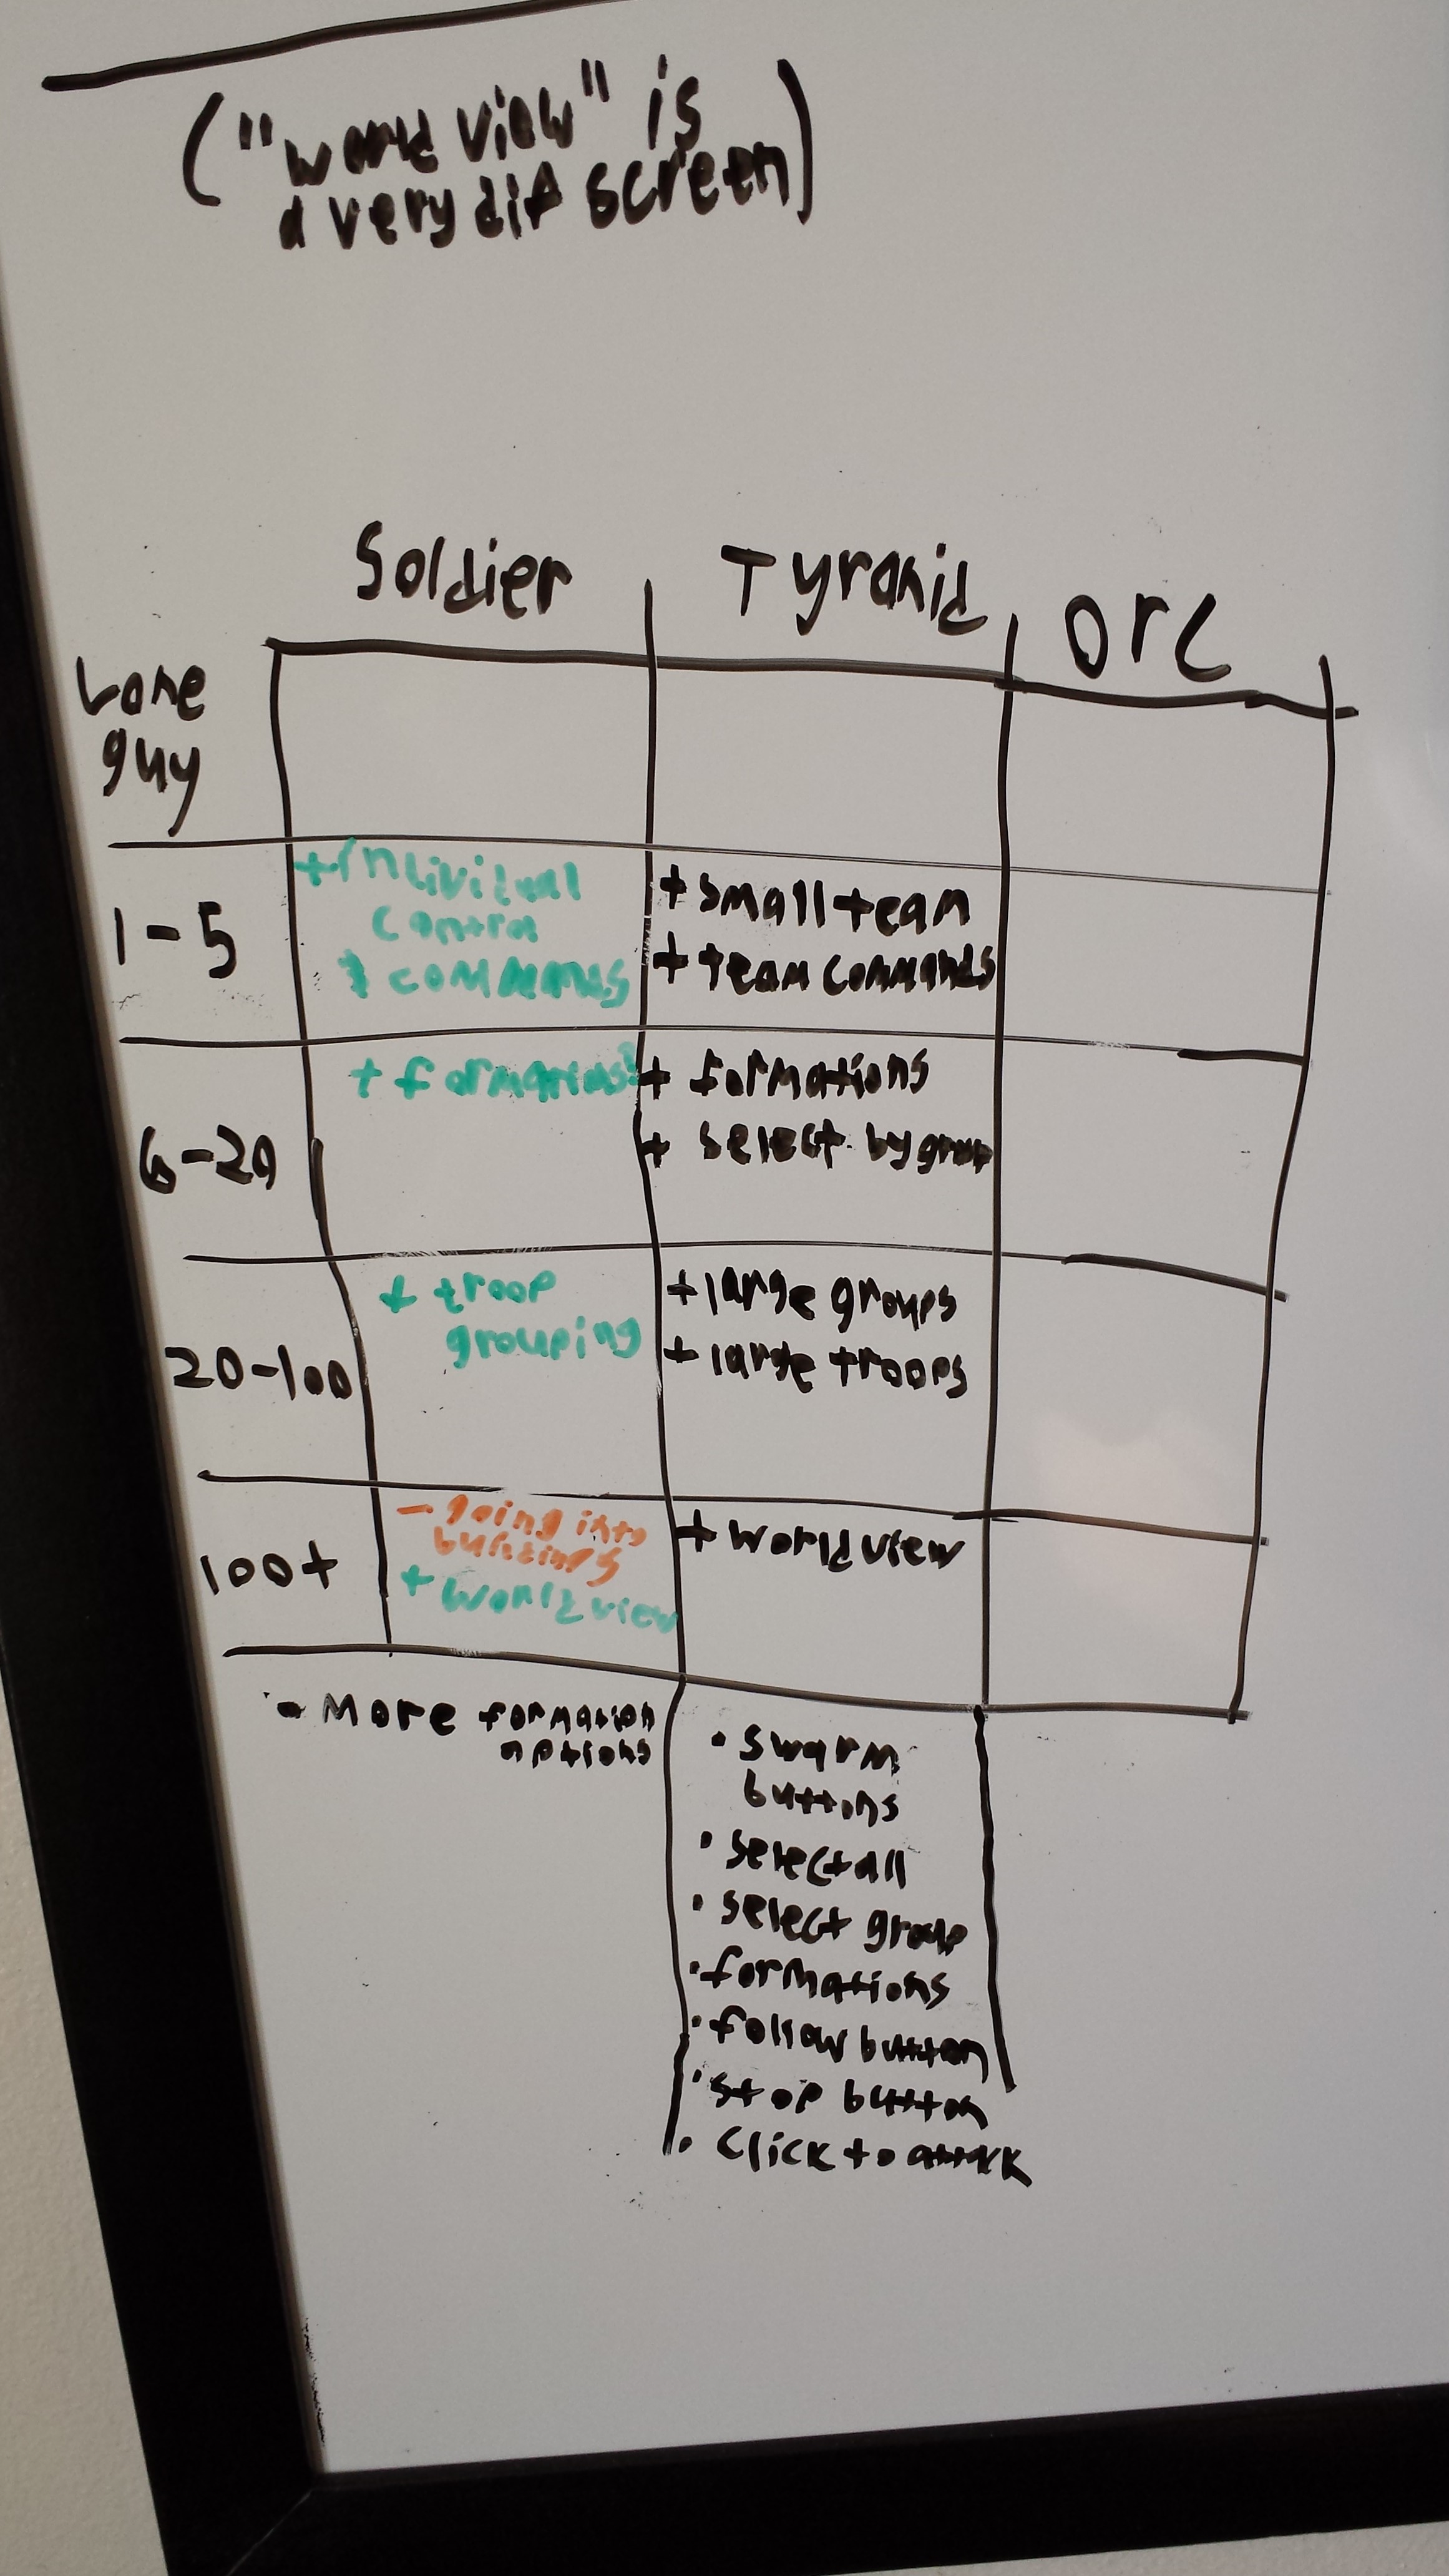 ("world view" is
a very dif screen)
Soldier Tyranid Orc
Lone
guy
1-5
+ individual
control
& commands
+ small team
+ team commands
6-20
+ formations?
+ formations
+ select by group
20-100
+ troop
grouping
+ large groups
+ large troops
100+
- going into
buildings
+ world view
+ world view
- More formation
options
• swarm
buttons
• select all
• select group
• formations
• follow button
• stop button
• click to attack